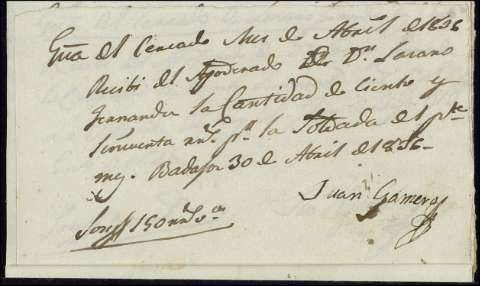 Gra del Cercado Mes de Abril de 1836
Recibi del Apoderado Dn. Lazaro
Fernandez la Cantidad de Ciento y
Cincuenta rrs. pr. la Soldada del pte
mes. Badajoz 30 de Abril de 1836-
Juan Gamero
Son 150 rrs.